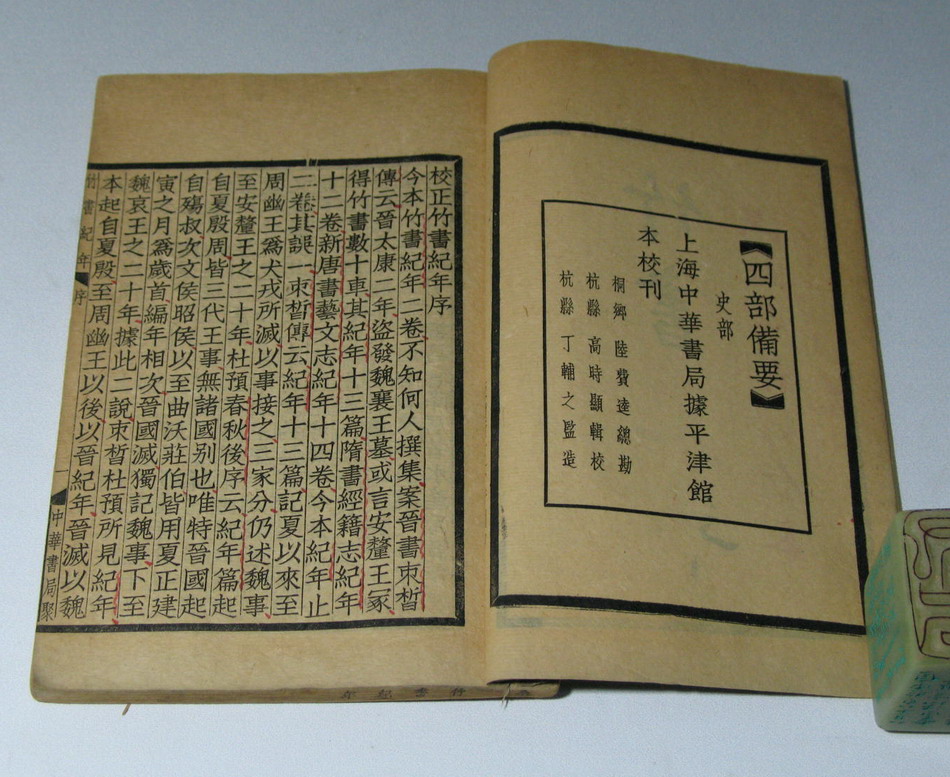 【四部備要】
史部
上海中華書局據平津館
本校刊
桐鄉 陸費逵總勘
杭縣 高時顯輯校
杭縣 丁輔之監造
校正竹書紀年序
今本竹書紀年二卷不知何人撰集案晉書束晳
傳云晉太康二年盜發魏襄王墓或言安釐王冢
得竹書數十車其紀年十三篇隋書經籍志紀年
十二卷新唐書藝文志紀年十四卷今本紀年止
二卷其誤一束晳傳云紀年十三篇記夏以來至
周幽王爲犬戎所滅以事接之三家分仍述魏事
至安釐王之二十年杜預春秋後序云紀年篇起
自夏殷周皆三代王事無諸國别也唯特晉國起
自殤叔次文侯昭侯以至曲沃莊伯皆用夏正建
寅之月爲歲首編年相次晉國滅獨記魏事下至
魏哀王之二十年據此二說束晳杜預所見紀年
本起自夏殷至周幽王以後以晉紀年晉滅以魏
竹書紀年 序 一 中華書局聚